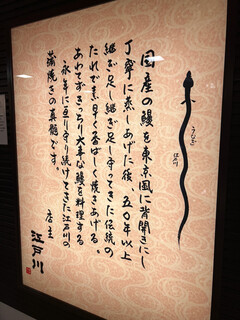 国産の鰻を東京風に背開きにし
丁寧に蒸しあげた後、五〇年以上
継ぎ足し継ぎ足し守ってきた伝統の
たれで素早く香ばしく焼きあげる。
あわてずきっちり大事な鰻を料理する
永年に亘り守り続けてきた江戸川の
蒲焼きの真髄です。
店主
江戸川
うなぎ
江戸川